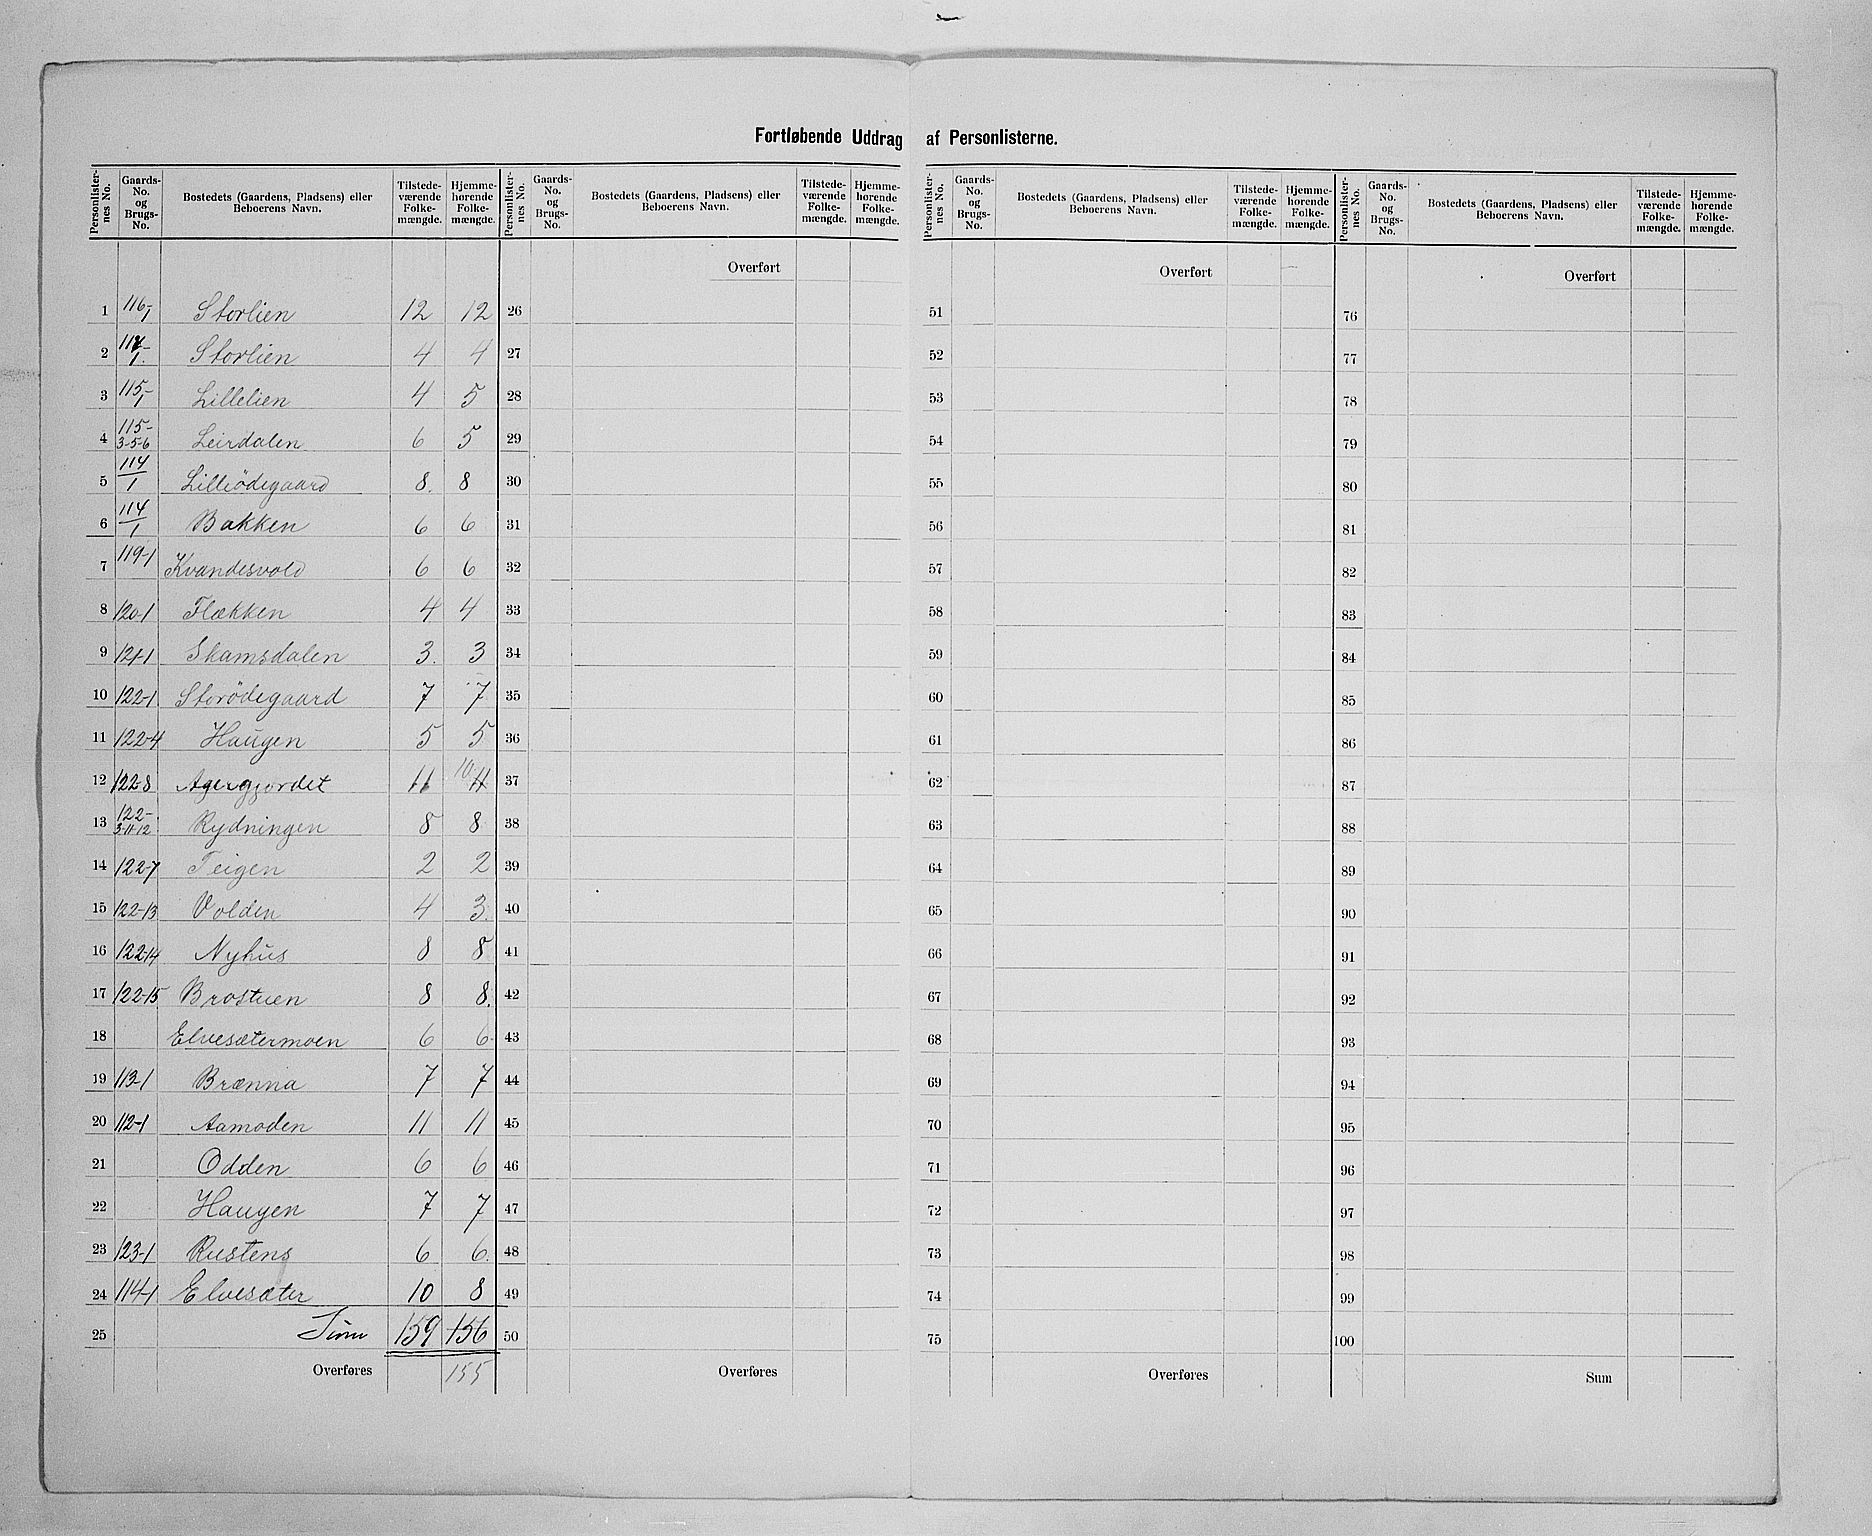 Fortløbende Uddrag af Personlisterne.
Personlister-nes No. Gaards-No. og Brugs-No. Bostedets (Gaardens, Pladsens) eller Beboerens Navn. Tilstede-værende Folke-mængde. Hjemme-hørende Folke-mængde. Personlister-nes No. Gaards-No. og Brugs-No. Bostedets (Gaardens, Pladsens) eller Beboerens Navn. Tilstede-værende Folke-mængde. Hjemme-hørende Folke-mængde. Personlister-nes No. Gaards-No. og Brugs-No. Bostedets (Gaardens, Pladsens) eller Beboerens Navn. Tilstede-værende Folke-mængde. Hjemme-hørende Folke-mængde. Personlister-nes No. Gaards-No. og Brugs-No. Bostedets (Gaardens, Pladsens) eller Beboerens Navn. Tilstede-værende Folke-mængde. Hjemme-hørende Folke-mængde.
Overført Overført Overført
1 116-1 Storlien 12 12 26 51 76
2 Storlien 4 4 27 52 77
3 115-1 Lillelien 4 5 28 53 78
4 115-3-5-6 Leirdalen 6 5 29 54 79
5 114/1 Lilleödegaard 8. 8 30 55 80
6 114/1 Bakken 6 6 31 56 81
7 119-1 Kvandesvold 6 6 32 57 82
8 120-1 Flækken 4 4 33 58 83
9 121-1 Skamsdalen 3. 3 34 59 84
10 122-1 Storödegaard 7 7 35 60 85
11 122-4 Haugen 5 5 36 61 86
12 122-8 Agergjordet 11 10 11 37 62 87
13 122-3-11-12 Rydningen 8 8 38 63 88
14 122-7 Teigen 2 2 39 64 89
15 122-13 Volden 4 3. 40 65 90
16 122-14 Nyhus 8 8 41 66 91
17 122-15 Brostuen 8 8. 42 67 92
18 Elvesætermoen 6 6 43 68 93
19 113-1 Brænna 7 7 44 69 94
20 112-1 Aamoden 11 11 45 70 95
21 Odden 6 6 46 71 96
22 Haugen 7 7 47 72 97
23 123-1 Rustens 6 6. 48 73 98
24 114-1 Elvesæter 10 8 49 74 99
25 Sum 159 156 50 75 100
Overføres 155 Overføres Overføres Sum